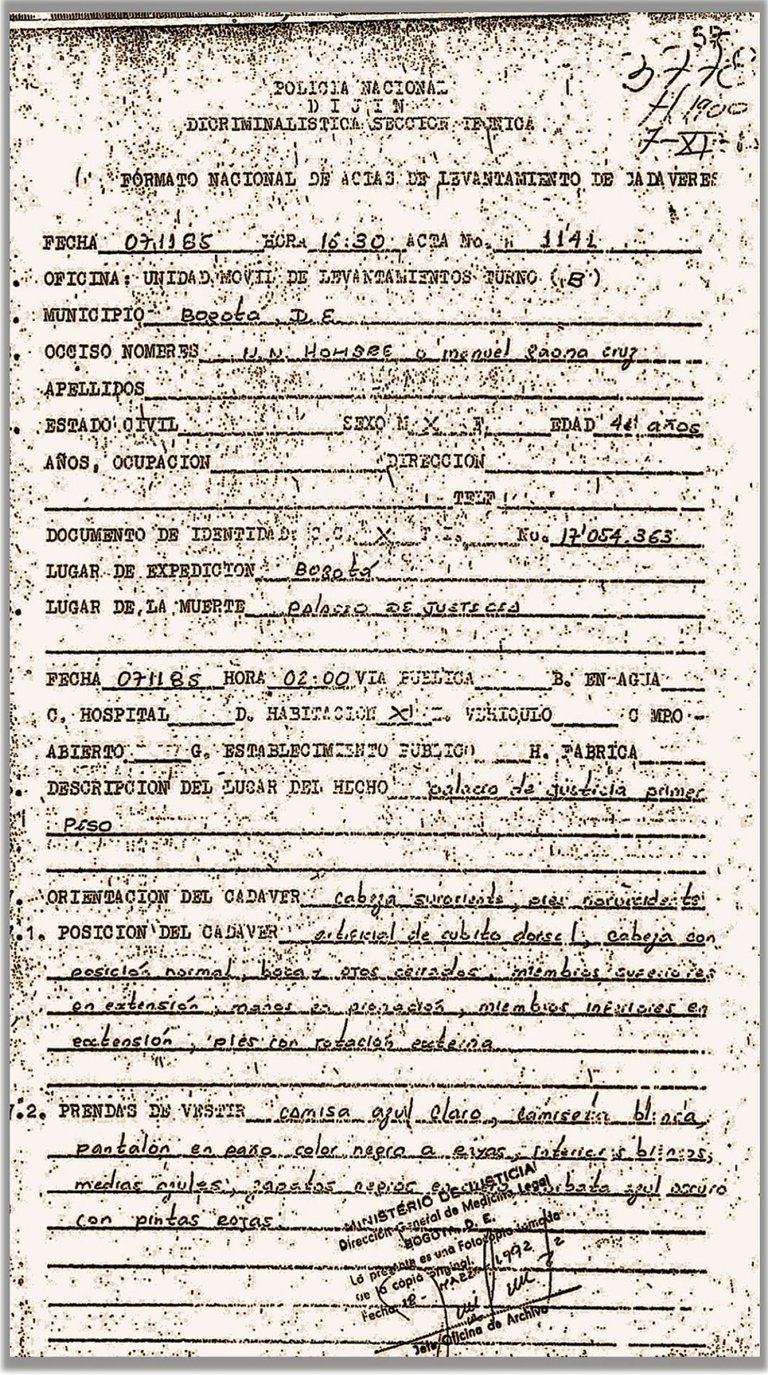 57
3776
7-XI
POLICIA NACIONAL
D I J I N
DICRIMINALISTICA SECCION TECNICA
FORMATO NACIONAL DE ACTAS DE LEVANTAMIENTO DE CADAVERES
FECHA 071185 HORA 16:30 ACTA No. 1141
OFICINA: UNIDAD MOVIL DE LEVANTAMIENTOS TURNO (B)
MUNICIPIO Bogotá D.E
OCCISO NOMBRES N.N. HOMBRE o manuel Gaona cruz
APELLIDOS
ESTADO CIVIL SEXO M X F. EDAD años
AÑOS, OCUPACION DIRECCION
TELF
DOCUMENTO DE IDENTIDAD: C.C. X T.I. No. 17'054.363
LUGAR DE EXPEDICION Bogotá
LUGAR DE LA MUERTE PALACIO DE JUSTICIA
FECHA 071185 HORA 02:00 VIA PUBLICA B. EN AGUA
C. HOSPITAL D. HABITACION X VEHICULO C MPO -
ABIERTO G. ESTABLECIMIENTO PUBLICO H. FABRICA
DESCRIPCION DEL LUGAR DEL HECHO palacio de justicia primer
PISO
ORIENTACION DEL CADAVER cabeza suroriente, pies noroccidente
7.1. POSICION DEL CADAVER artificial de cubito dorsal, cabeza con
posición normal, boca y ojos cerrados, miembros superiores
en extensión, manos en pronación, miembros inferiores en
extensión, piés con rotación externa
7.2. PRENDAS DE VESTIR camisa azul claro, camiseta blanca,
pantalón en paño color negro a rayas, interiores blancos,
medias azules, zapatos negros corbata azul oscuro
con pintas rojas
MINISTERIO DE JUSTICIA
Dirección General de Medicina Legal
BOGOTA, D. E.
La presente es una Fotocopia tomada
de la copia original.
Fecha 18- 1992
Jefe Oficina de Archivo